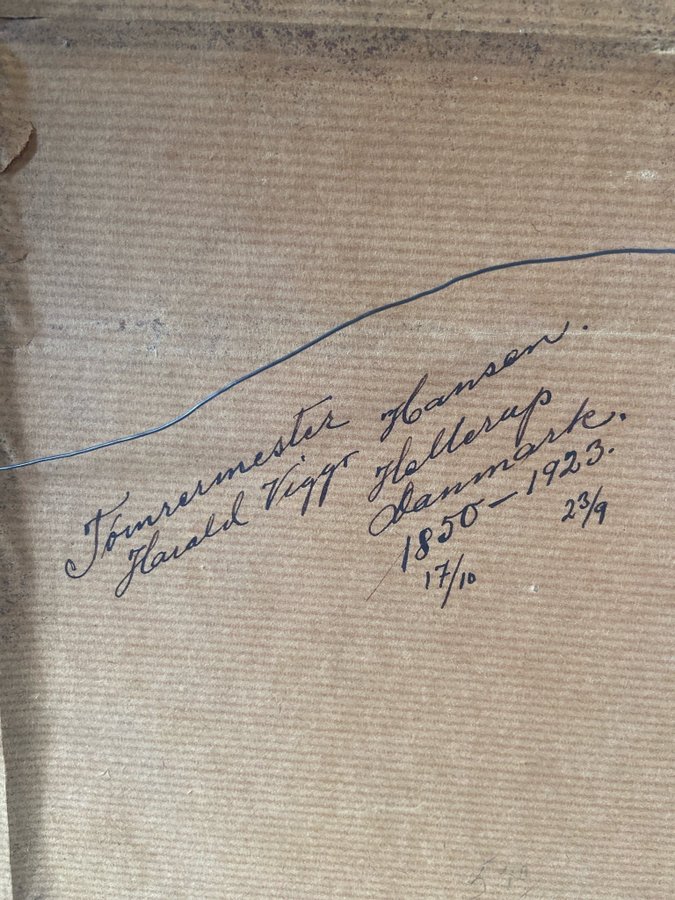 Tømrermester
Harald Viggo Hansen.
Hellerup
Danmark.
1850 – 1923.
17/10 23/9